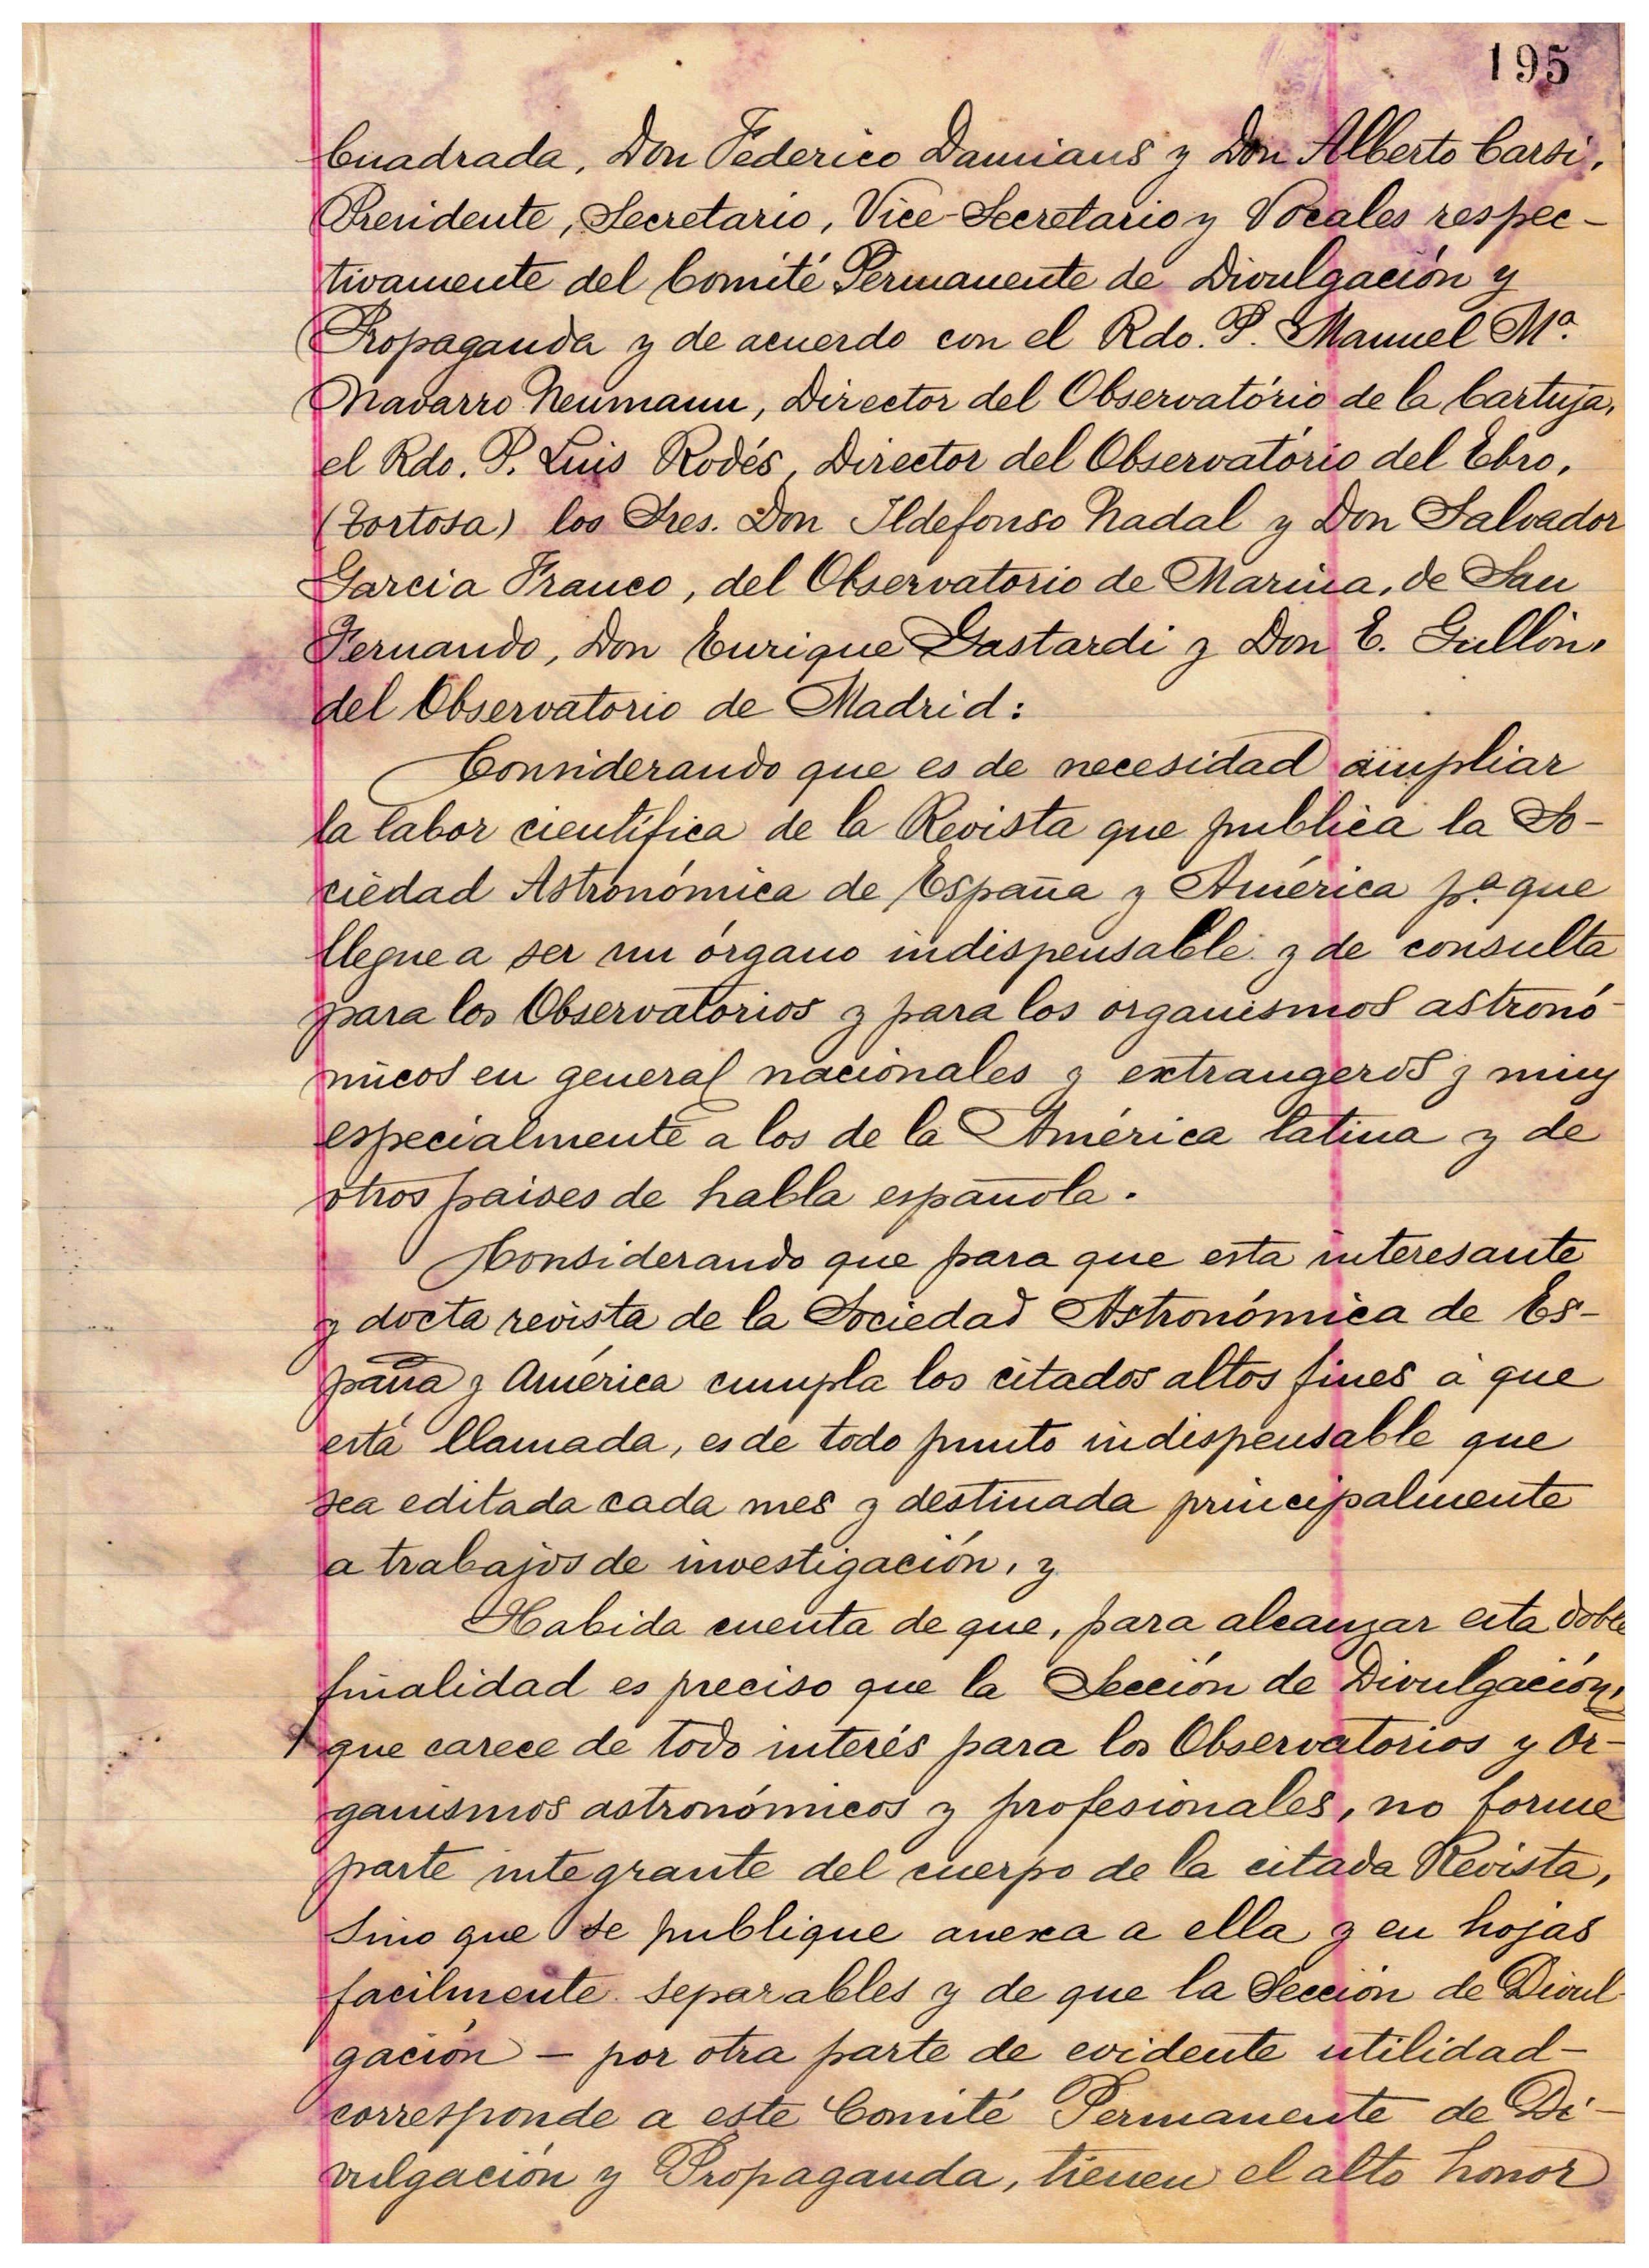 195
Cuadrada, Don Federico Damians y Don Alberto Carsi,
Presidente, Secretario, Vice-Secretario y Vocales respec-
tivamente del Comité Permanente de Divulgación y
Propaganda y de acuerdo con el Rdo. P. Manuel Mª.
Navarro Neumann, Director del Observatório de la Cartuja,
el Rdo. P. Luis Rodés, Director del Observatório del Ebro,
(Tortosa) los Sres. Don Ildefonso Nadal y Don Salvador
Garcia Franco, del Observatorio de Marina, de San
Fernando, Don Enrique Gastardi y Don E. Gullón,
del Observatorio de Madrid:
Considerando que es de necesidad ampliar
la labor científica de la Revista que publica la So-
ciedad Astronómica de España y América pª. que
llegue a ser un órgano indispensable y de consulta
para los Observatorios y para los organismos astronó-
micos en general nacionales y extrangeros y muy
especialmente a los de la América latina y de
otros paises de habla española.
Considerando que para que esta interesante
y docta revista de la Sociedad Astronómica de Es-
paña y América cumpla los citados altos fines á que
está llamada, es de todo punto indispensable que
sea editada cada mes y destinada principalmente
a trabajos de investigación, y
Habida cuenta de que, para alcanzar esta doble
finalidad es preciso que la Sección de Divulgación,
que carece de todo interés para los Observatorios y Or-
ganismos astronómicos y profesionales, no forme
parte integrante del cuerpo de la citada Revista,
sino que se publique anexa a ella y en hojas
facilmente separables y de que la Sección de Divul-
gación - por otra parte de evidente utilidad -
corresponde a este Comité Permanente de Di-
vulgación y Propaganda, tienen el alto honor